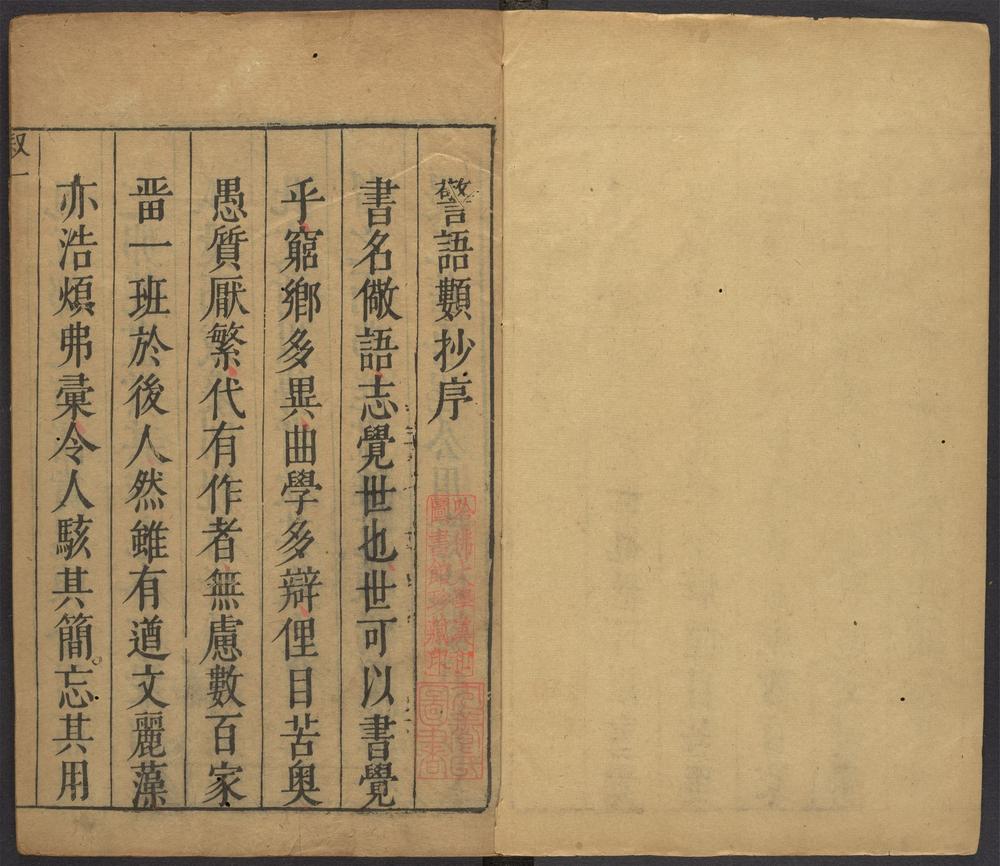 警語類抄序
書名儆語志覺世也世可以書覺
乎窮鄉多異曲學多辯俚目苦奥
愚質厭繁代有作者無慮數百家
畱一班於後人然雖有遒文麗藻
亦浩煩弗彙令人駭其簡忘其用
哈佛大學漢和
圖書館珍藏印
圖書